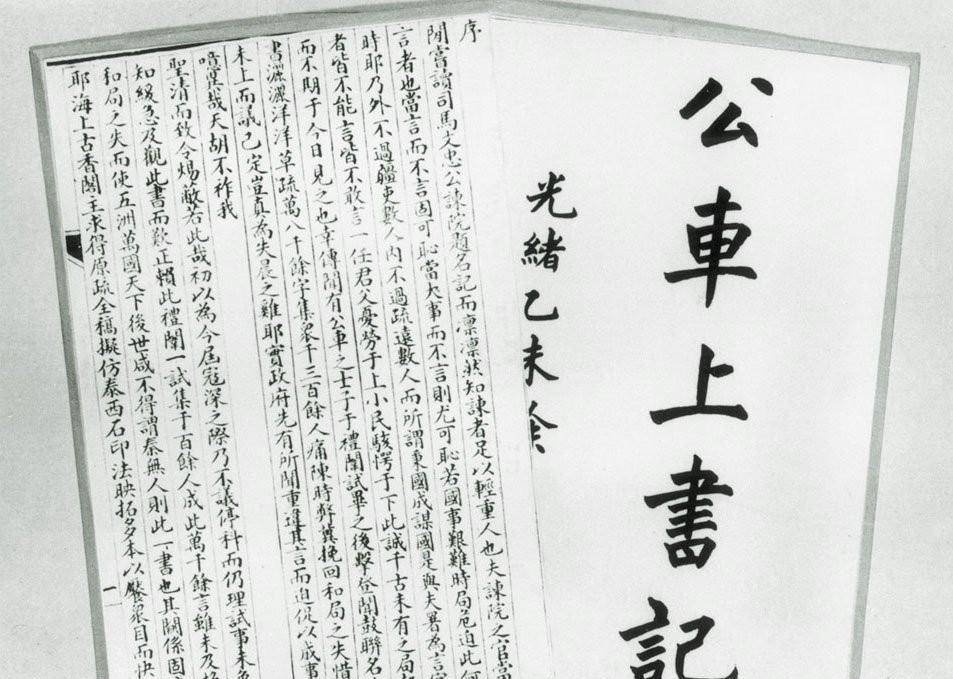 公車上書記
光緒乙未
序
聞嘗讀司馬文忠公諫院題名記而凛凛然知諫者足以輕重人也夫諫院之官當
言者也當言而不言固可恥當大事而不言則尤可恥若國事艱難時局危迫此何
時耶乃外不過疆吏數人內不過疏遠數人而所謂秉國成謀國是與夫署為言官
者皆不能言皆不敢言一任君父憂勞于上小民駭愕于下此誠千古未有之局
而不期于今日見之也幸傳聞有公車之士子于禮闈試畢之後擊登聞鼓聯名
書灑灑洋洋草疏萬八千餘字集衆千三百餘人痛陳時弊冀挽回和局之失惜
未上而議已定豈真為失晨之雞耶實政府先有所聞重違其言而迫促以成事
噫是哉天胡不祚我
聖清而致令煬蔽若此哉初以為今屆寇深之際乃不議停科而仍理試事未免
知緩急及觀此書而歎正賴此禮闈一試集千百餘人成此萬千餘言雖未及
和局之失而使五洲萬國天下後世咸不得謂秦無人則此一書也其關係固
耶海上古香閣主求得原疏全稿擬仿泰西石印法映拓多本以饜衆目而快
一